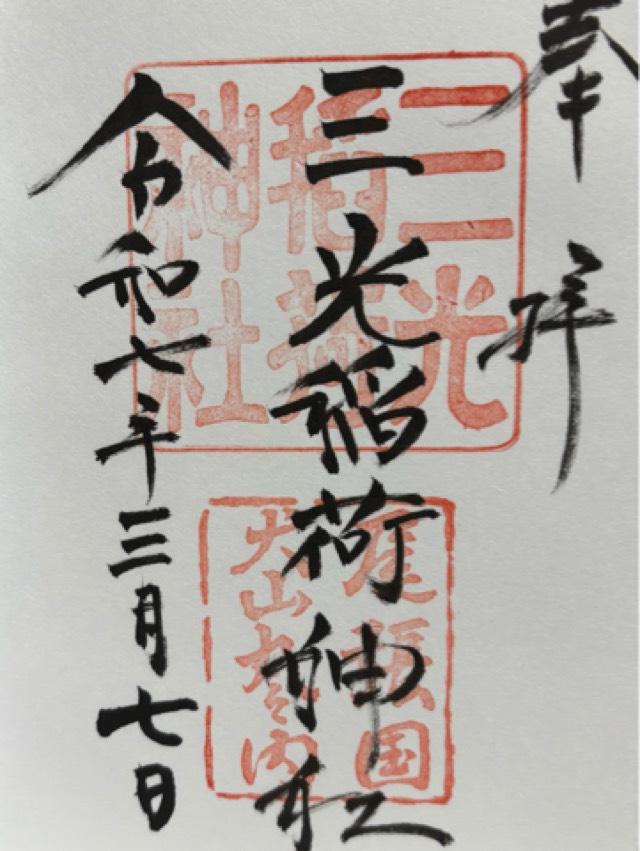 奉拝
三光稲荷神社
令和七年三月七日
三光
稲荷
神社
尾張国
犬山城内